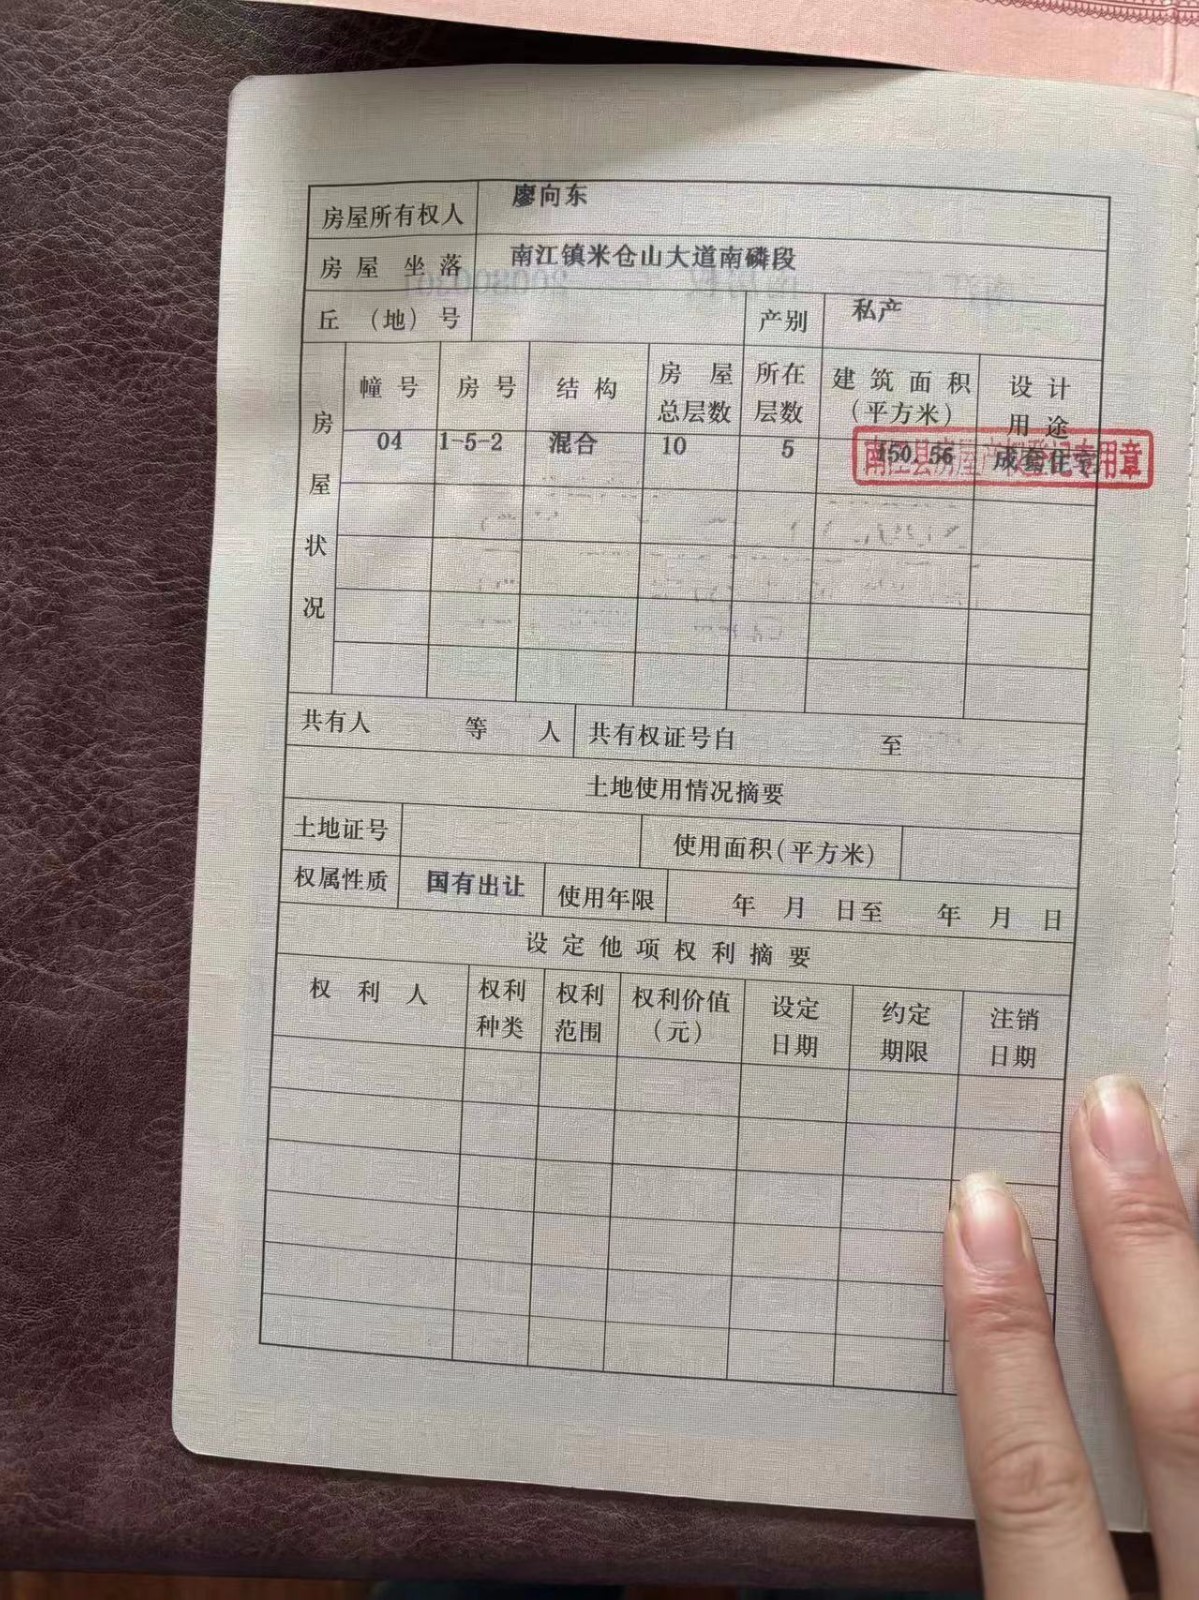 房屋所有权人 廖向东
房屋坐落 南江镇米仓山大道南磷段
丘（地）号 产别 私产
房屋状况
幢号 房号 结构 房屋总层数 所在层数 建筑面积（平方米） 设计用途
04 1-5-2 混合 10 5 150.56 成套住
南江县房屋产权登记专用章
共有人 等 人 共有权证号自 至
土地使用情况摘要
土地证号 使用面积(平方米)
权属性质 国有出让 使用年限 年 月 日至 年 月 日
设定他项权利摘要
权利人 权利种类 权利范围 权利价值（元） 设定日期 约定期限 注销日期